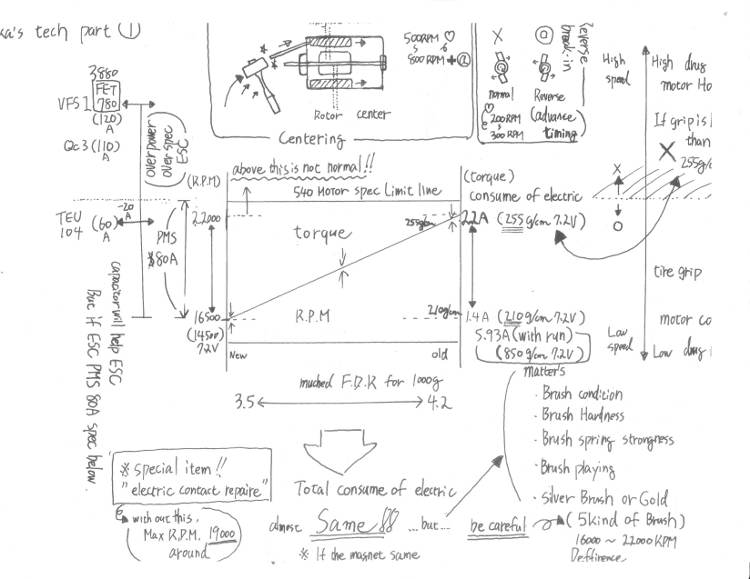 ka's tech part ①
3880
FET
780
VFS 1
(120)
A
Qc3 (110)
A
over power
over spec
ESC
TEU
104
(60)
A
-20
A
PMS
$80A
capacitor will help ESC
But if ESC PMS 80A spec below.
Rotor center
Centering
500RPM ♡
800RPM +②
X
◎
Reverse
break-in
Normal
Reverse
200RPM
300 RPM
(advance
timing)
(R.P.M)
above this is not normal!!
540 Motor spec Limit line
22000
torque
255g/cm
R.P.M
210g/cm
16500
(14500)
7.2V
New
old
(torque)
consume of electric
2.2A (255 g/cm 7.2V)
1.4A (210g/cm 7.2V)
5.93A (with run)
(850g/cm 7.2V)
High
speed
High drug
motor Ho
If grip is
than
X 255g/c
X
O
tire grip
motor co
Low
speed
Low drug
muched F.D.R for 1000g
3.5
4.2
matter's
· Brush condition
· Brush Hardness
· Brush spring strongness
· Brush playing
· Silver Brush or Gold
(5kind of Brush)
16000 ~ 22000 RPM
Deffirence
※ special item!!
"electric contact repaire"
with out this.
Max R.P.M. 19000
around
Total consume of electric
almost Same!! ...but... be careful
※ If the magnet same